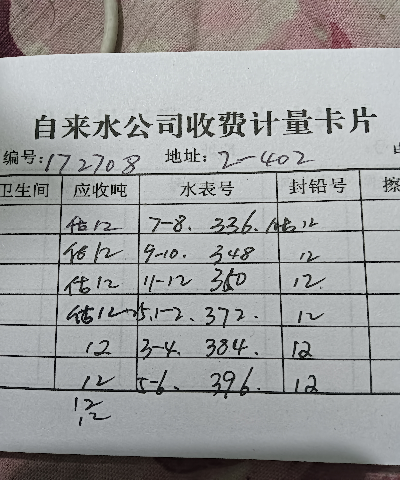 自来水公司收费计量卡片
编号:172708 地址: 2-402
卫生间 应收吨 水表号 封铅号 擦
估12 7-8. 336. 估12
估12 9-10. 348 12
估12 11-12 360 12.
估12 25.1-2. 372. 12
12 3-4. 384. 12
12 5-6. 396. 12
12
12